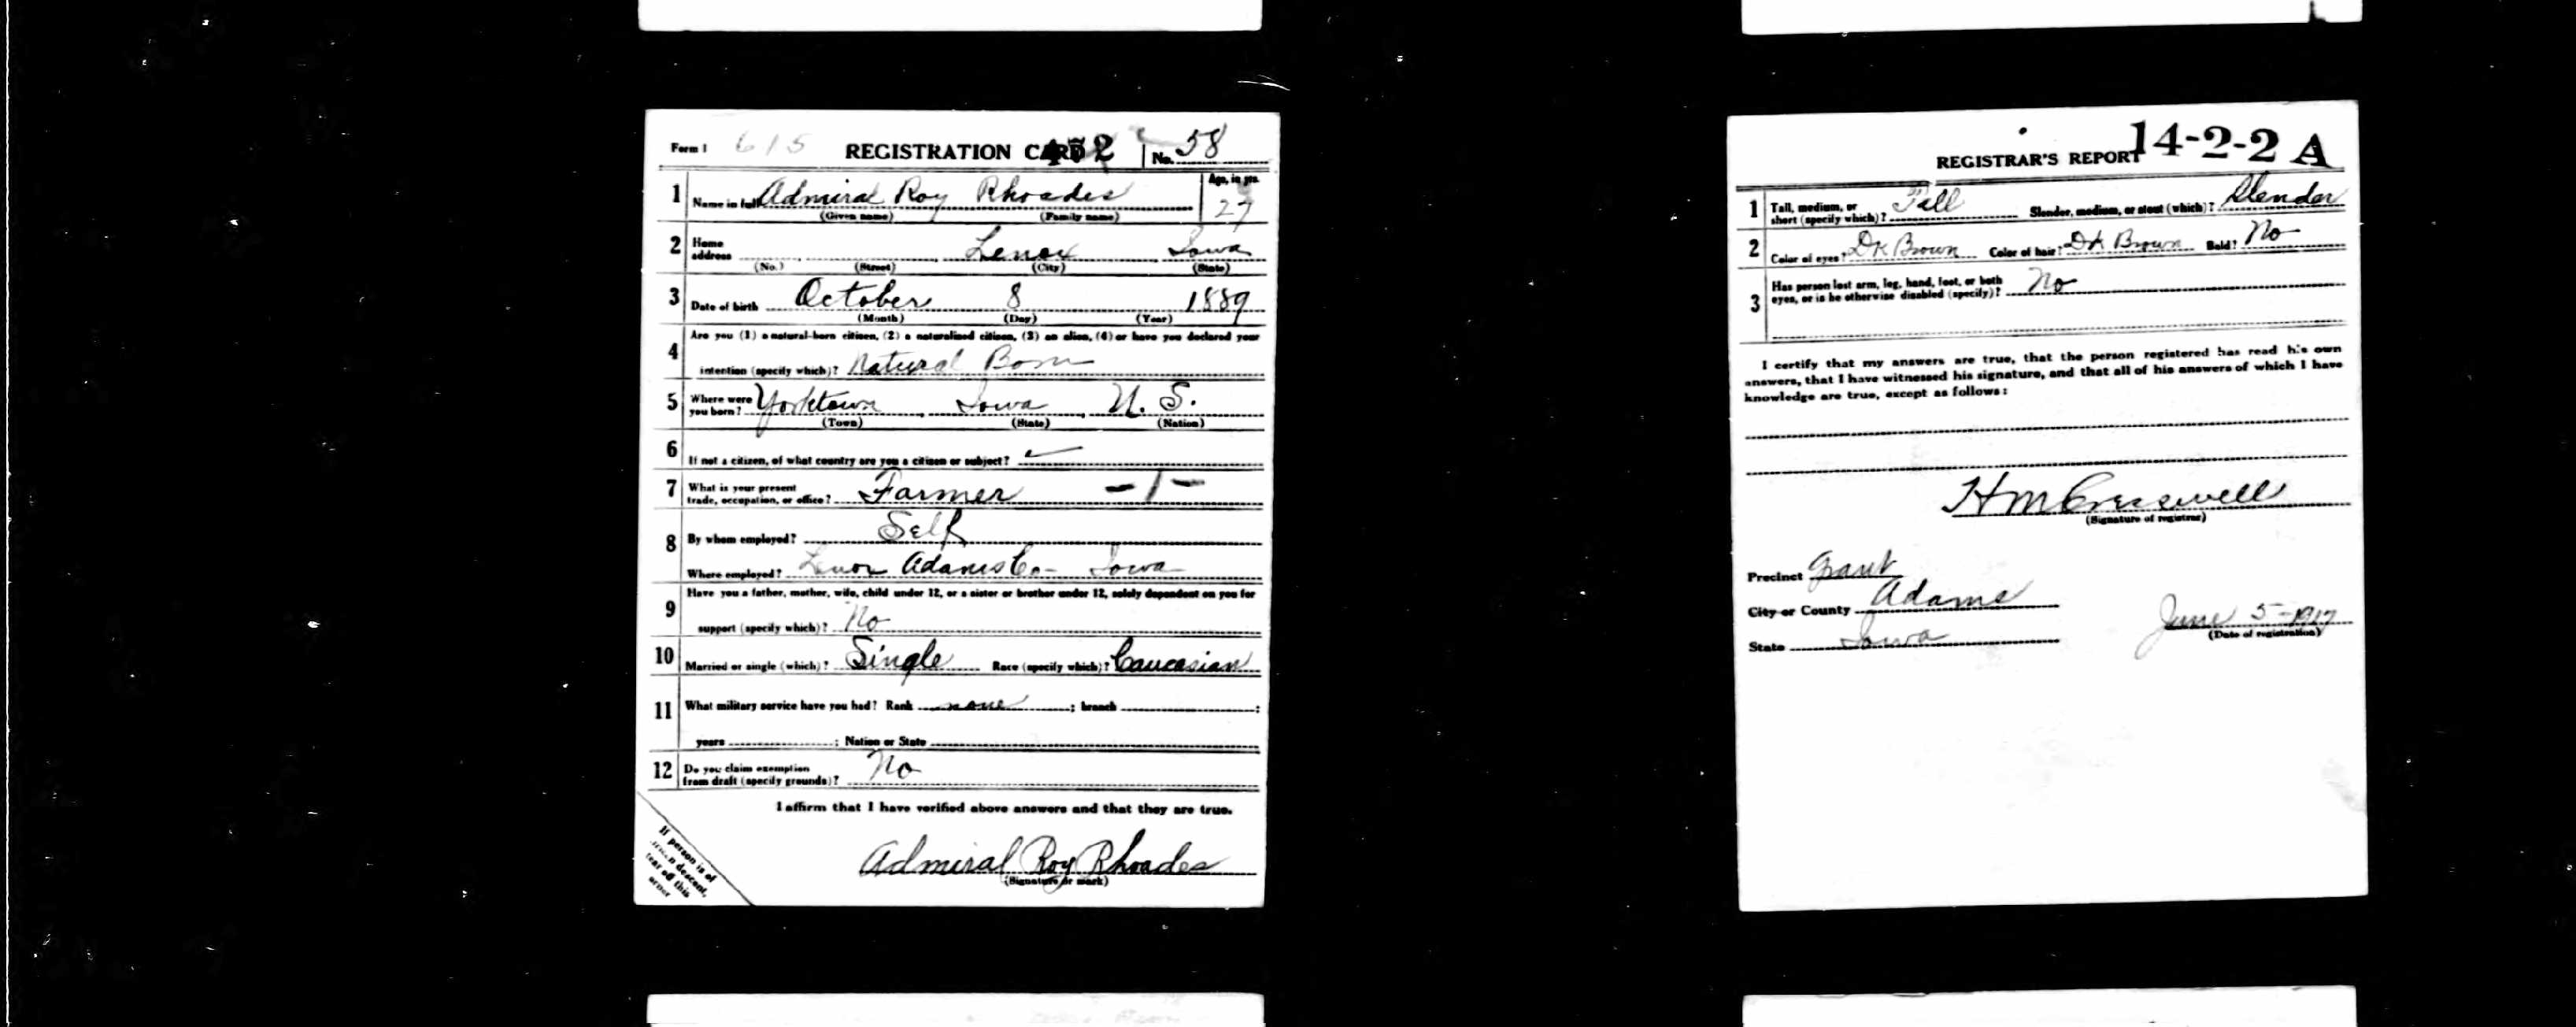 Form 1 615 REGISTRATION CARD 432 No. 58
1 Name in full Admiral Roy Rhoades Age, in yrs. 27
(Given name) (Family name)
2 Home address Lenox Iowa
(No.) (Street) (City) (State)
3 Date of birth October 8 1889
(Month) (Day) (Year)
4 Are you (1) a natural-born citizen, (2) a naturalized citizen, (3) an alien, (4) or have you declared your
intention (specify which)? Natural Born
5 Where were you born? Yorktown, Iowa, U. S.
(Town) (State) (Nation)
6 If not a citizen, of what country are you a citizen or subject?
7 What is your present trade, occupation, or office? Farmer - 1 -
8 By whom employed? Self
Where employed? Lenox Adams Co - Iowa
9 Have you a father, mother, wife, child under 12, or a sister or brother under 12, solely dependent on you for
support (specify which)? No
10 Married or single (which)? Single Race (specify which)? Caucasian
11 What military service have you had? Rank none ; branch ;
years ; Nation or State
12 Do you claim exemption from draft (specify grounds)? No
I affirm that I have verified above answers and that they are true.
Admiral Roy Rhoades
(Signature or mark)
If person is of
descent,
tear off this
corner
14-2-2 A
REGISTRAR'S REPORT
1 Tall, medium, or short (specify which)? Tall Slender, medium, or stout (which)? Slender
2 Color of eyes? Dk Brown Color of hair? Dk Brown Bald? No
3 Has person lost arm, leg, hand, foot, or both eyes, or is he otherwise disabled (specify)? No
I certify that my answers are true, that the person registered has read his own
answers, that I have witnessed his signature, and that all of his answers of which I have
knowledge are true, except as follows:
H M Cresswell
(Signature of registrar)
Precinct Grant
City or County Adams
State Iowa
June 5 - 1917
(Date of registration)